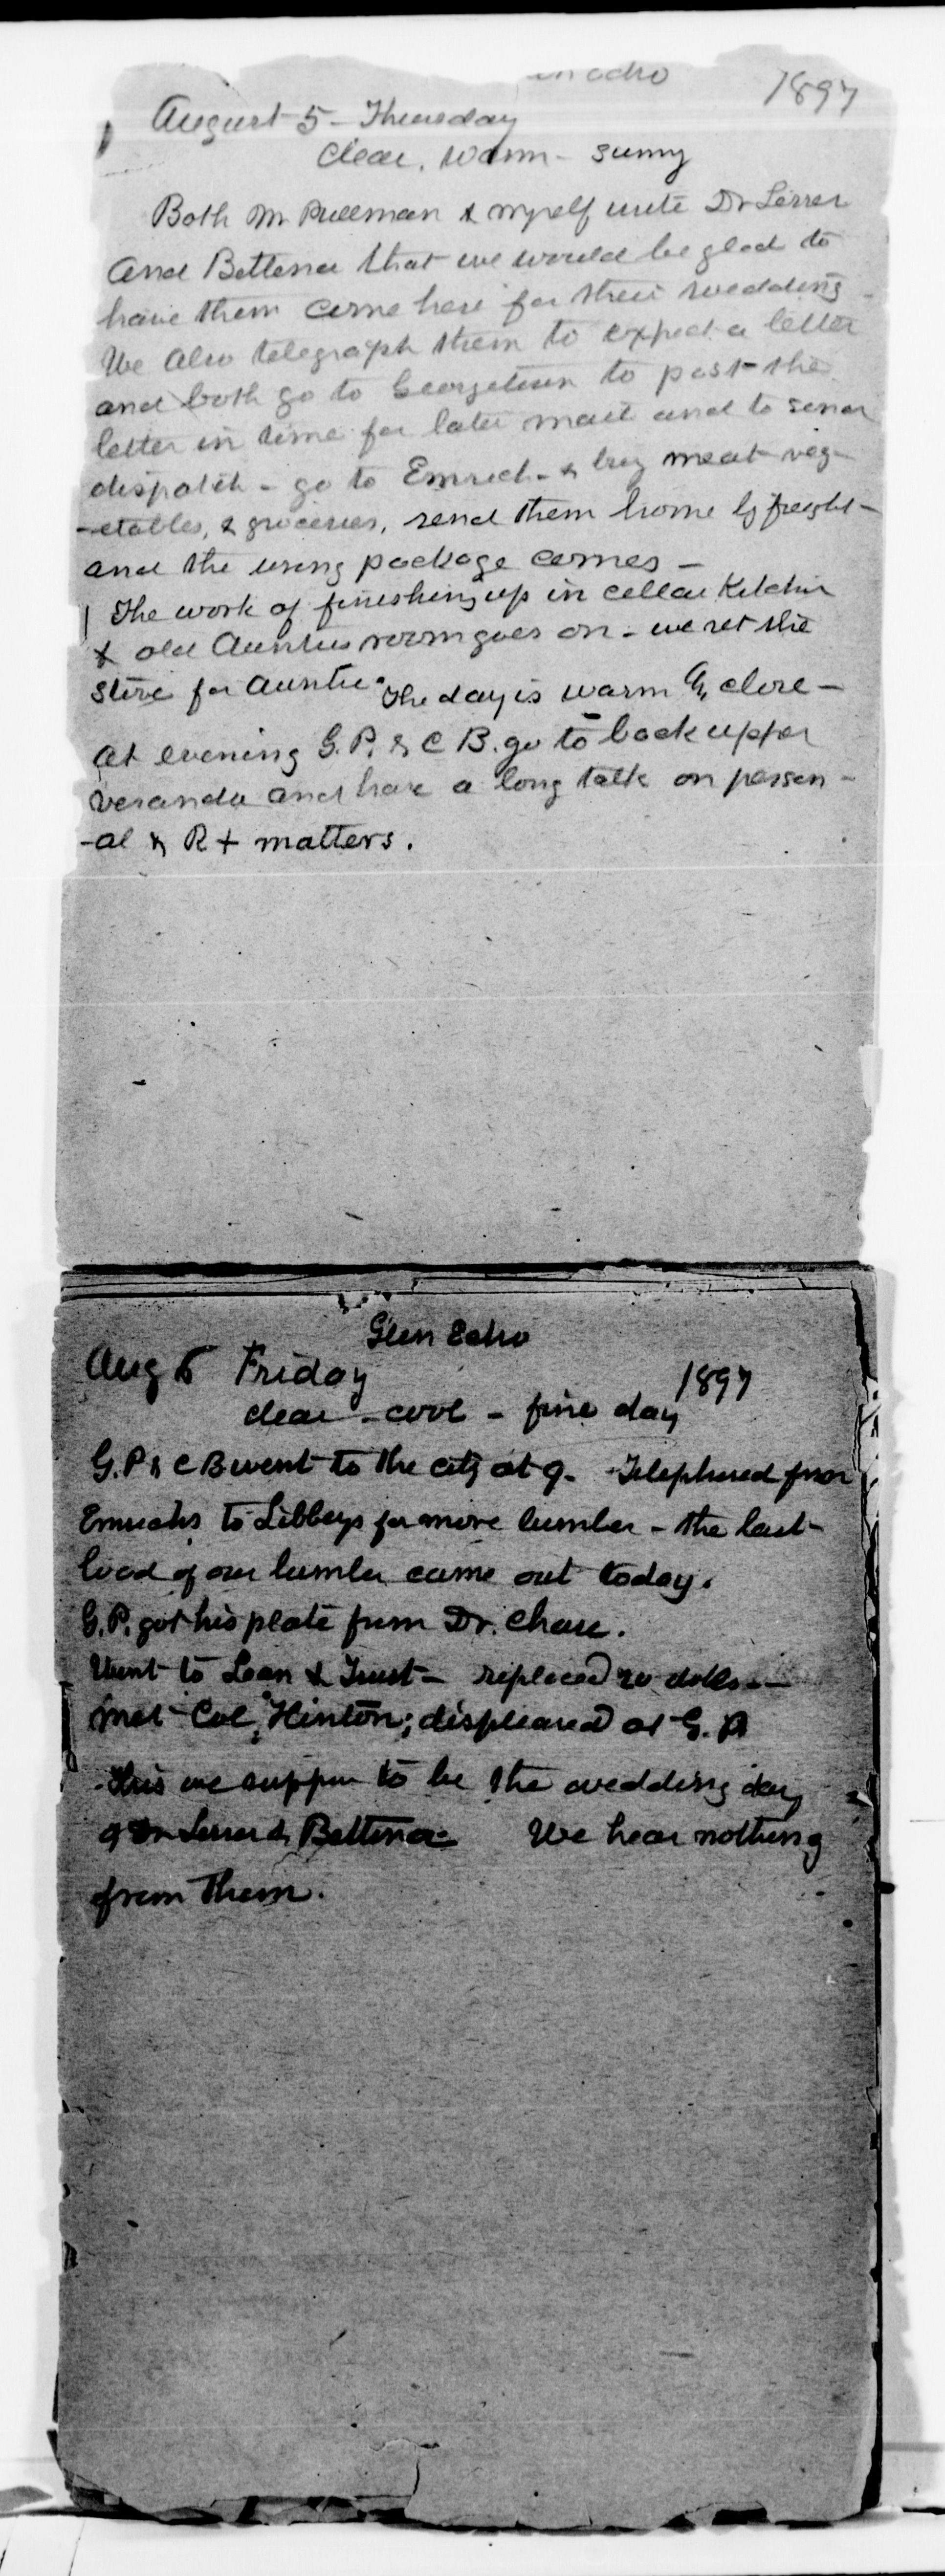 echo 1897
August 5 - Thursday
clear, warm - sunny
Both Mr Pullman & myself write Dr Lerrer
and Bettina that we would be glad to
have them come here for their wedding -
We also telegraph them to expect a letter
and both go to Georgetown to post the
letter in time for later mail and to send
dispatch - go to Emrich - & buy meat veg-
-etables, & groceries, send them home by freight -
and the wrong package comes -
The work of finishing up in cellar Kitchin
& old Aunties room goes on - we set the
stove for Auntie. The day is warm & close -
At evening G. P. & C B. go to back upper
veranda and have a long talk on person-
-al & R + matters.
Glen Echo
Aug 6 Friday 1897
clear - cool - fine day
G.P & C B went to the city at 9. Telephoned from
Emrichs to Libbeys for more lumber - the last
load of our lumber came out today.
G.P. got his plate from Dr. Chase.
Went to Loan & Trust - replaced 20 dolls -
Met Col. Hinton; displeased at G. P
This we suppose to be the wedding day
of Dr Lerrer & Bettina We hear nothing
from them.